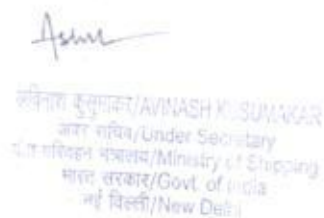 अविनाश कुसुमाकर/AVINASH KUSUMAKAR
अवर सचिव/Under Secretary
परिवहन मंत्रालय/Ministry of Shipping
भारत सरकार/Govt. of India
नई दिल्ली/New Delhi